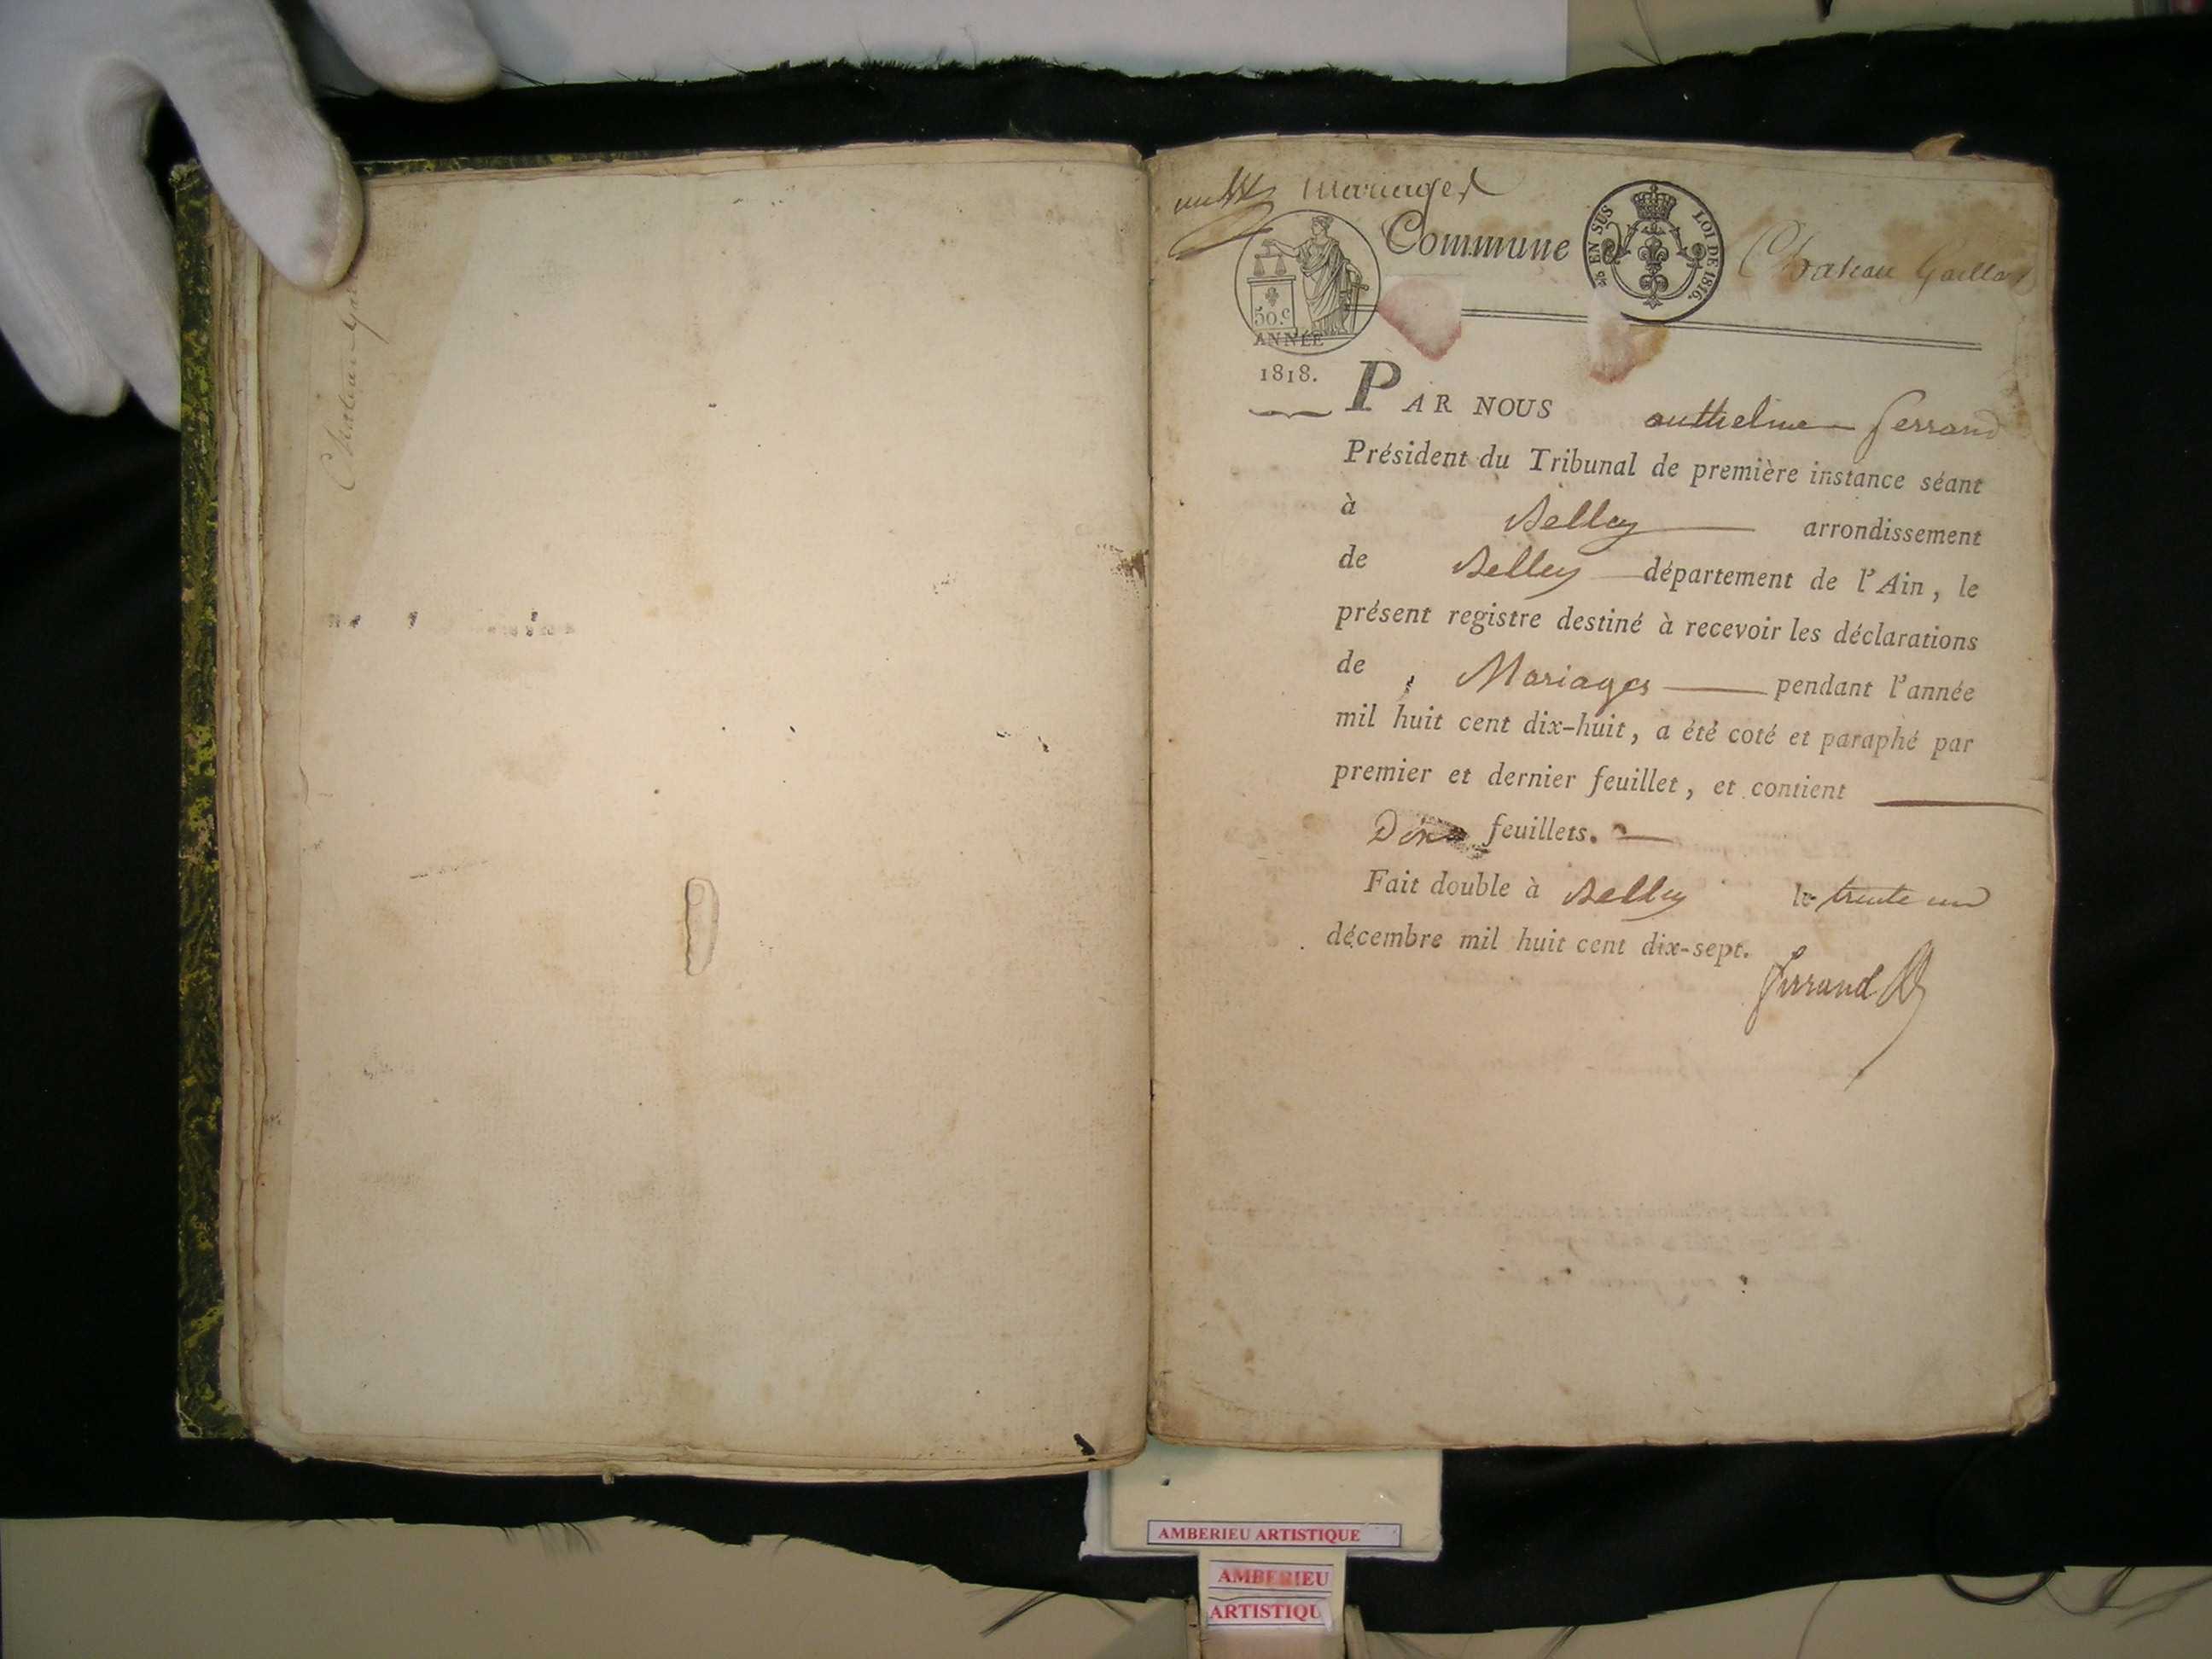 Chateau
mariages
Commune
Chateau Gaillard
¼ EN SUS
LOI DE 1816.
50.c
ANNÉE
1818.
PAR NOUS anthelme ferrand
Président du Tribunal de première instance séant
à Belley arrondissement
de Belley département de l'Ain, le
présent registre destiné à recevoir les déclarations
de Mariages pendant l'année
mil huit cent dix-huit, a été coté et paraphé par
premier et dernier feuillet, et contient
feuillets.
Fait double à Belley le trente un
décembre mil huit cent dix-sept.
ferrand
AMBERIEU ARTISTIQUE
AMBERIEU
ARTISTIQU